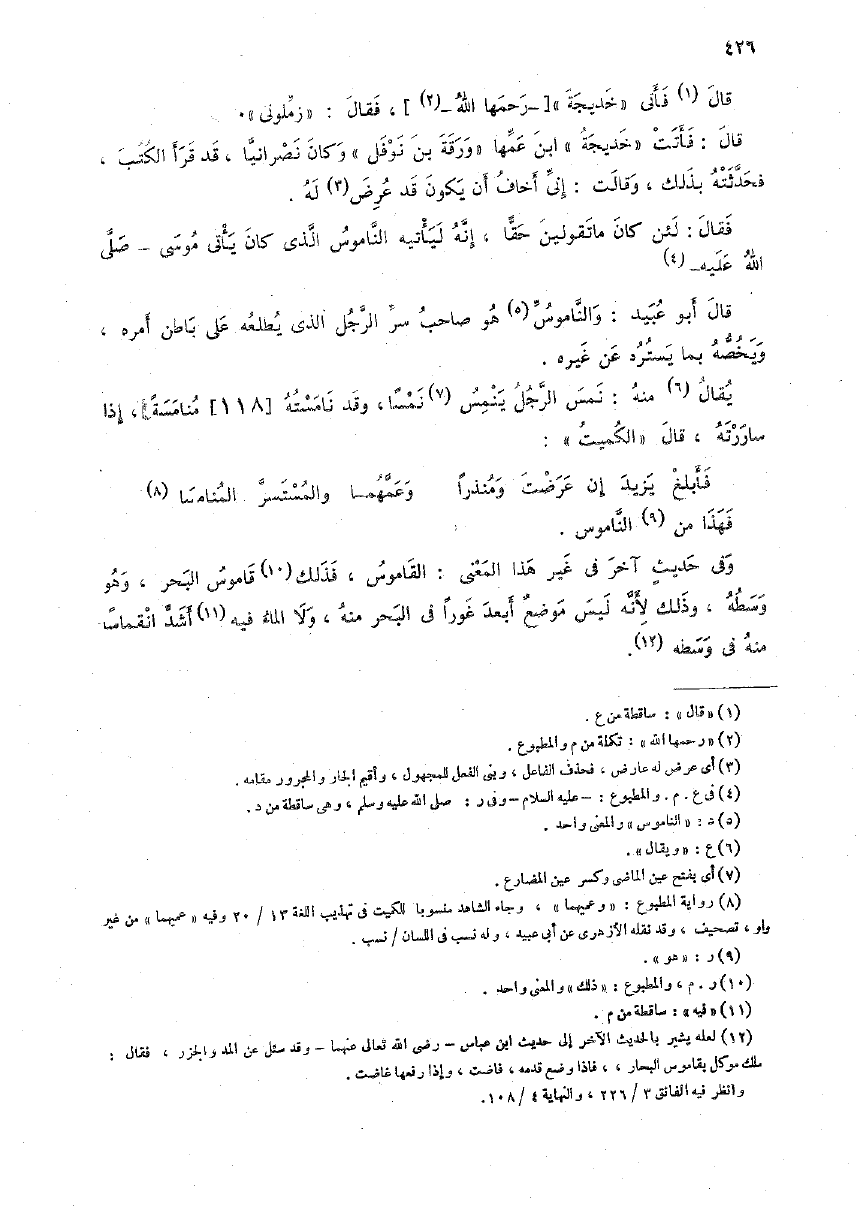 ٤٢٦
قالَ (١) فَأَتى «خَديجَةَ »[ــرَحمَها اللهُ ــ(٢) ] ، فَقالَ : «زمِّلونى»٠
قالَ : فَأَتَتْ «خَديجةُ » ابنَ عَمِّها «وَرَقَةَ بنَ نَوْفَل » وَكانَ نَصْرانيًّا ، قَد قَرَأَ الكُتُبَ ،
فحَدَّثَتْهُ بذَلك ، وَقالَت : إنىِّ أَخافُ أَن يَكونَ قَد عُرِضَ(٣) لَهُ .
فَقالَ : لَئن كانَ ماتَقولينَ حَقًّا ، إنَّهُ لَيَأْتيه النَّاموسُ الَّذى كانَ يَأْتى مُوسَى – صَلَّى
اللهُ عَلَيه– (٤)
قالَ أَبو عُبَيد : وَالنَّاموسُ(٥) هُو صاحبُ سرِّ الرَّجُل الذى يُطلعُه عَلى بَاطن أَمره ،
وَيَخُصُّهُ بما يَستُرُه عَن غَيره .
يُقالُ (٦) منهُ : نَمسَ الرَّجُلُ يَنْمِسُ (٧) نَمْسًا ، وقَد نَامَسْتُهُ [١١٨] مُنامَسَةً ، إذا
ساوَرْتَهُ ، قالَ «الكُميتُ» :
فَأَبلغْ يَزيدَ إن عَرَضْتَ وَمُنذراً وَعَمَّهُما والمُسْتَسرَّ المُنامسَا (٨)
فَهَذَا من (٩) النَّاموس .
وَفى حَديثٍ آخرَ فى غَير هَذا المَعْنى : القَاموسُ ، فَذَلك (١٠) قَاموسُ البَحر ، وَهُو
وَسَطُهُ ، وذَلكَ لأَنَّه لَيسَ مَوضعٌ أَبعدَ غَوراً فى البَحر منهُ ، وَلَا الماءُ فيه (١١) أَشَدَّ انْقماسًا
منهُ فى وَسَطه (١٢).
(١) «قال» : ساقطة من ع .
(٢) «رحمها الله» : تكملة من م والمطبوع .
(٣) أى عرض له عارض ، فحذف الفاعل ، وبنى الفعل للمجهول ، وأقيم الجار والمجرور مقامه .
(٤) فى ع . م . والمطبوع : –عليه السلام –وفى ر : صلى الله عليه وسلم ، وهى ساقطة من د .
(٥) د : «الناموس» والمعنى واحد .
(٦) ع : «ويقال» .
(٧) أى بفتح عين الماضى وكسر عين المضارع .
(٨) رواية المطبوع : «وعميهما» ، وجاء الشاهد منسوبا للكيت فى تهذيب اللغة ١٣ / ٢٠ وفيه «عميهما» من غير
واو ، تصحيف ، وقد نقله الأزهرى عن أبى عبيد ، وله نسب فى اللسان / نسب .
(٩) ر : «هو» .
(١٠) ر . م ، والمطبوع : «ذلك» والمعنى واحد .
(١١) «فيه» : ساقطة من م .
(١٢) لعله يشير بالحديث الآخر إلى حديث ابن عباس – رضى الله تعالى عنهما – وقد سئل عن المد والجزر ، فقال :
ملك موكل بقاموس البحار ، ، فاذا وضع قدمه ، فاضت ، وإذا رفعها غاضت .
وانظر فيه الفائق ٣ / ٢٢٦ ، والنهاية ٤ / ١٠٨.